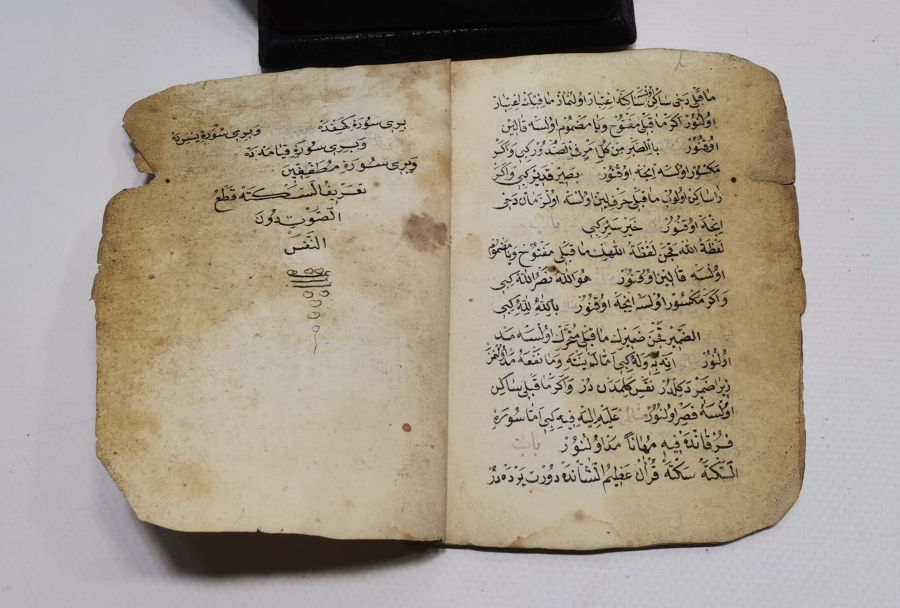 ما قبلی دخی ساکن اولسه ساکنه اعتبار اولنماز ما قبلنه
اولنور اکر ما قبلی مفتوح ویا مضموم اولسه قالین
اوقنور بالصبر من کل حرف الصدور کبی واکر
مکسور اولسه اینجه اوقنور بصیر قدیر کبی واکر
را ساکن اولوب ما قبلی حرف لین اولسه اولزمان دخی
اینجه اوقنور خیر سیر کبی باب
لفظة الله قچن لفظة اللهك ما قبلی مفتوح ویا مضموم
اولسه قالین اوقنور هو الله نصر الله کبی
واکر مکسور اولسه اینجه اوقنور بالله لله کبی
الضمیر قچن ضمیرك ما قبلی متحرك اولسه مد
اولنور انه به وله کبی اما وما نفقه مد اولنمز
زیرا ضمیر دکلدر نفس کلمه دن در واکر ما قبلی ساکن
اولسه قصر اولنور مثال علیه الیه فیه کبی اما سوره
فرقانده فیه مهانا مد اولنور باب
السکته سکته قرآن عظیم الشانده دورت یرده در
بری سورۀ کهفده وبری سورۀ یسده
وبری سورۀ قیامه ده
وبری سورۀ مطففین
تعریف السکته قطع
الصوت دون
النفس